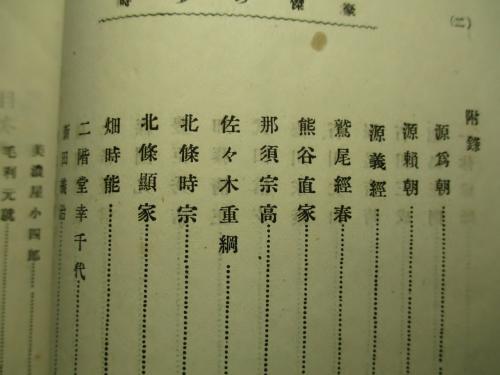 豪傑の少時
(二)
附錄
源爲朝
源賴朝
源義經
鷲尾經春
熊谷直家
那須宗高
佐々木重綱
北條時宗
北條顯家
畑時能
二階堂幸千代
新田義治
美濃屋小四郎
毛利元就
目次